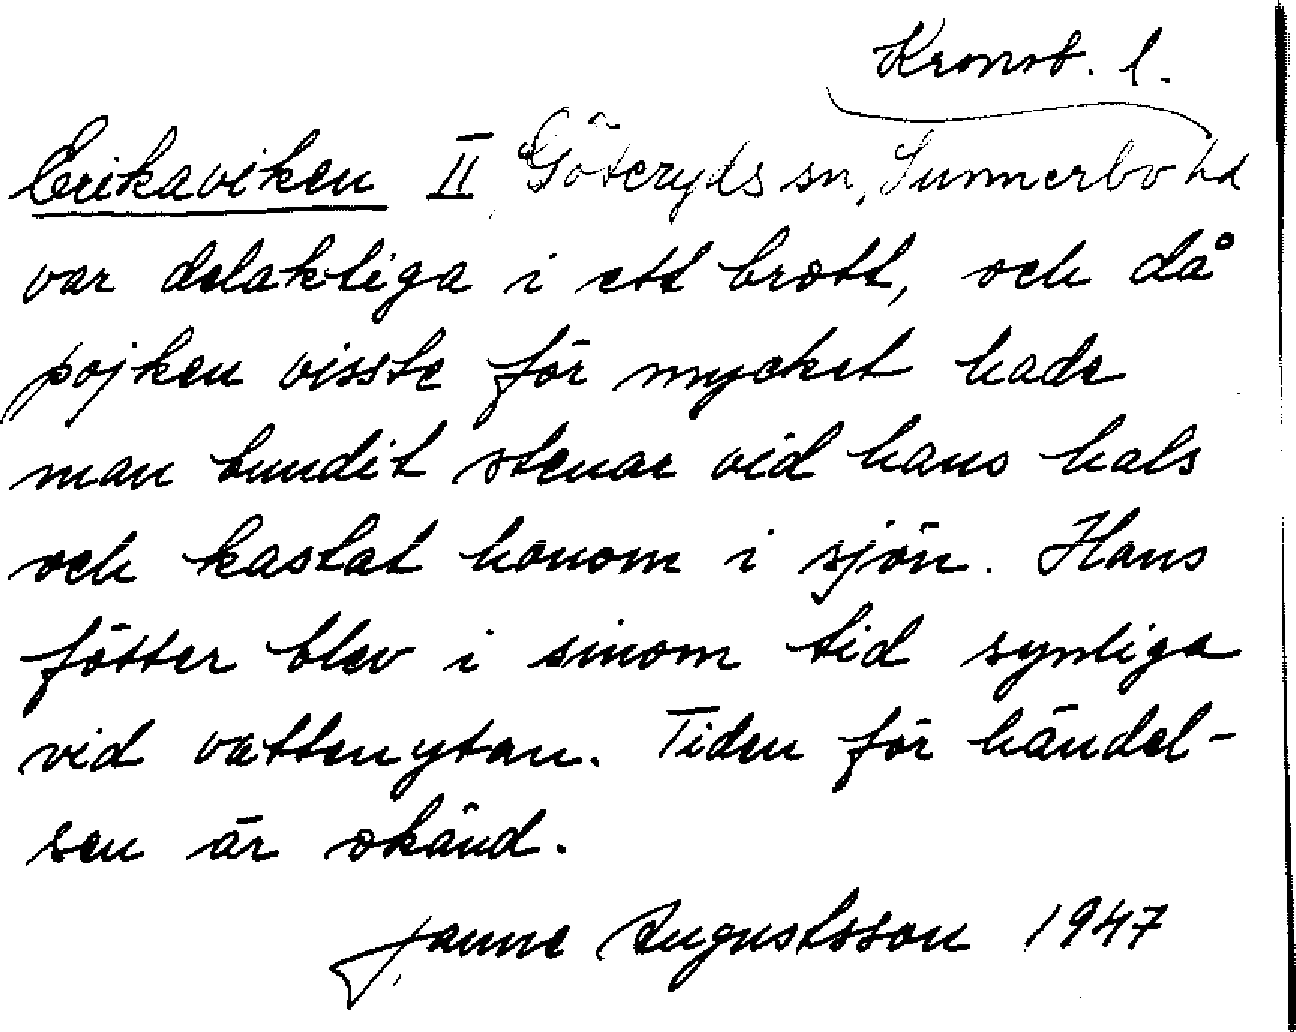 Kronob. l.
Erikaviken II Göteryds sn, Sunnerbo hd
var delaktiga i ett brott, och då
pojken visste för mycket hade
man bundit stenar vid hans hals
och kastat honom i sjön. Hans
fötter blev i sinom tid synliga
vid vattenytan. Tiden för händel-
sen är okänd.
Janne Augustsson 1947